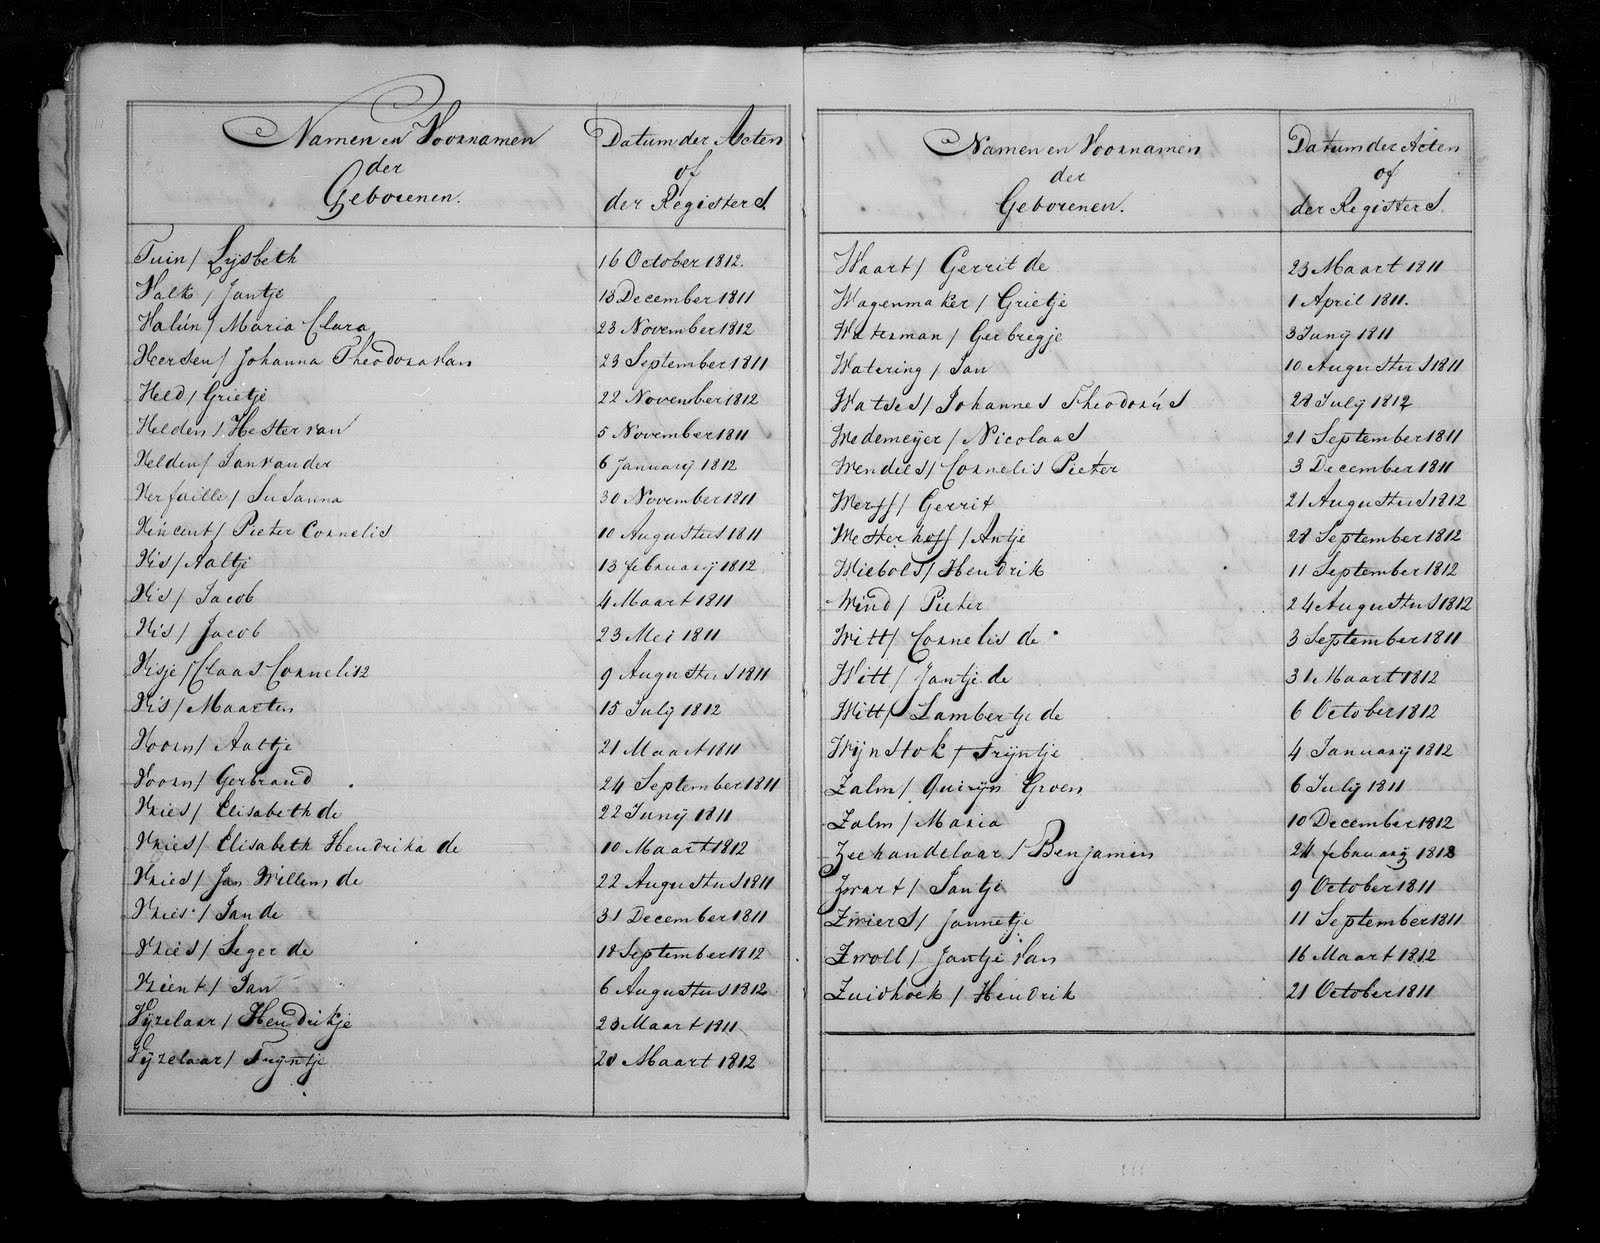 Namen en Voornamen
der
Geborenen.
Datum der Acten
of
der Registers.
Tuin / Lysbeth 16 October 1812.
Valk / Jantje 13 December 1811
Valún / Maria Clara 23 November 1812
Veersen / Johanna Theodora van 23 September 1811
Veld / Grietje 22 November 1812
Velden / Hester van 5 November 1811
Velden / Jan van der 6 January 1812
Verfaille / Susanna 30 November 1811
Vincent / Pieter Cornelis 10 Augustus 1811
Vis / Aaltje 13 february 1812
Vis / Jacob 4 Maart 1811
Vis / Jacob 23 Mei 1811
Visje / Claas Cornelisz 9 Augustus 1811
Vis / Maarten 15 July 1812
Voorn / Aaltje 21 Maart 1811
Voorn / Gerbrand 24 September 1811
Vries / Elisabeth de 22 Juny 1811
Vries / Elisabeth Hendrika de 10 Maart 1812
Vries / Jan Willem de 22 Augustus 1811
Vries / Jan de 31 December 1811
Vries / Seger de 18 September 1812
Vrient / Jan 6 Augustus 1812
Vyzelaar / Hendrikje 23 Maart 1811
Vyzelaar / Tryntje 28 Maart 1812
Namen en Voornamen
der
Geborenen.
Datum der Acten
of
der Registers.
Waart / Gerrit de 23 Maart 1811
Wagenmaker / Grietje 1 April 1811.
Waterman / Gerbregje 3 Juny 1811
Watering / Jan 10 Augustus 1811
Watses / Johannes Theodorús 28 July 1812
Wedemeyer / Nicolaas 21 September 1811
Wendels / Cornelis Pieter 3 December 1811
Werff / Gerrit 21 Augustus 1812
Westerhoff / Antje 28 September 1812
Wiebols / Hendrik 11 September 1812
Wind / Pieter 24 Augustus 1812
Witt / Cornelis de 3 September 1811
Witt / Jantje de 31 Maart 1812
Witt / Lambertje de 6 October 1812
Wynstok / Tryntje 4 January 1812
Zalm / Quiryn Groen 6 July 1811
Zalm / Maria 10 December 1812
Zeehandelaar / Benjamin 24 february 1812
Zwart / Jantje 9 October 1811
Zwiers / Jannetje 11 September 1811
Zwoll / Jantje van 16 Maart 1812
Zuidhoek / Hendrik 21 October 1811